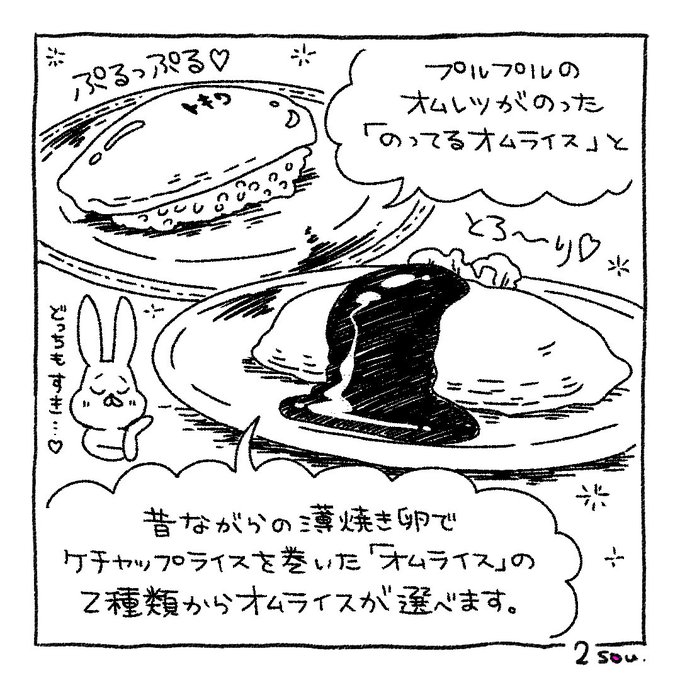 ぷるっぷる♡
トキワ
プルプルの
オムレツがのった
「のってるオムライス」と
とろ〜り♡
どっちもすき…♡
昔ながらの薄焼き卵で
ケチャップライスを巻いた「オムライス」の
2種類からオムライスが選べます。
2sou.